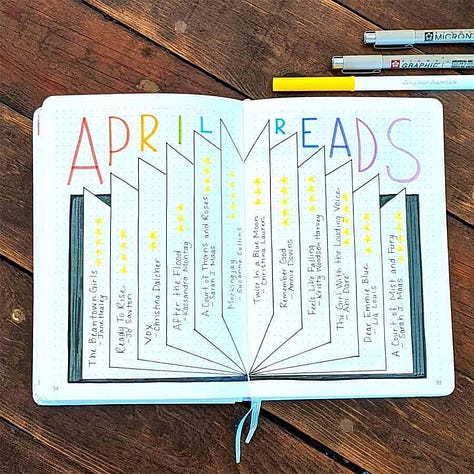 MICRON
GRAPHIC 1
APRIL READS
The Beantown Girls
- Jane Healey
Ready To Rise
- Jo Saxton
Vox
- Christina Dalcher
After the Flood
- Kassandra Montag
A Court of Thorns and Roses
- Sarah J. Maas
Mockingjay
- Suzanne Collins
Twice In a Blue Moon
- Christina Lauren
Remember God
- Annie Downs
Feels Like Falling
- Kristy Woodson Harvey
The Girl With the Louding Voice
- Abi Daré
Dear Emmie Blue
- Lia Louis
A Court of Mist and Fury
- Sarah J. Maas